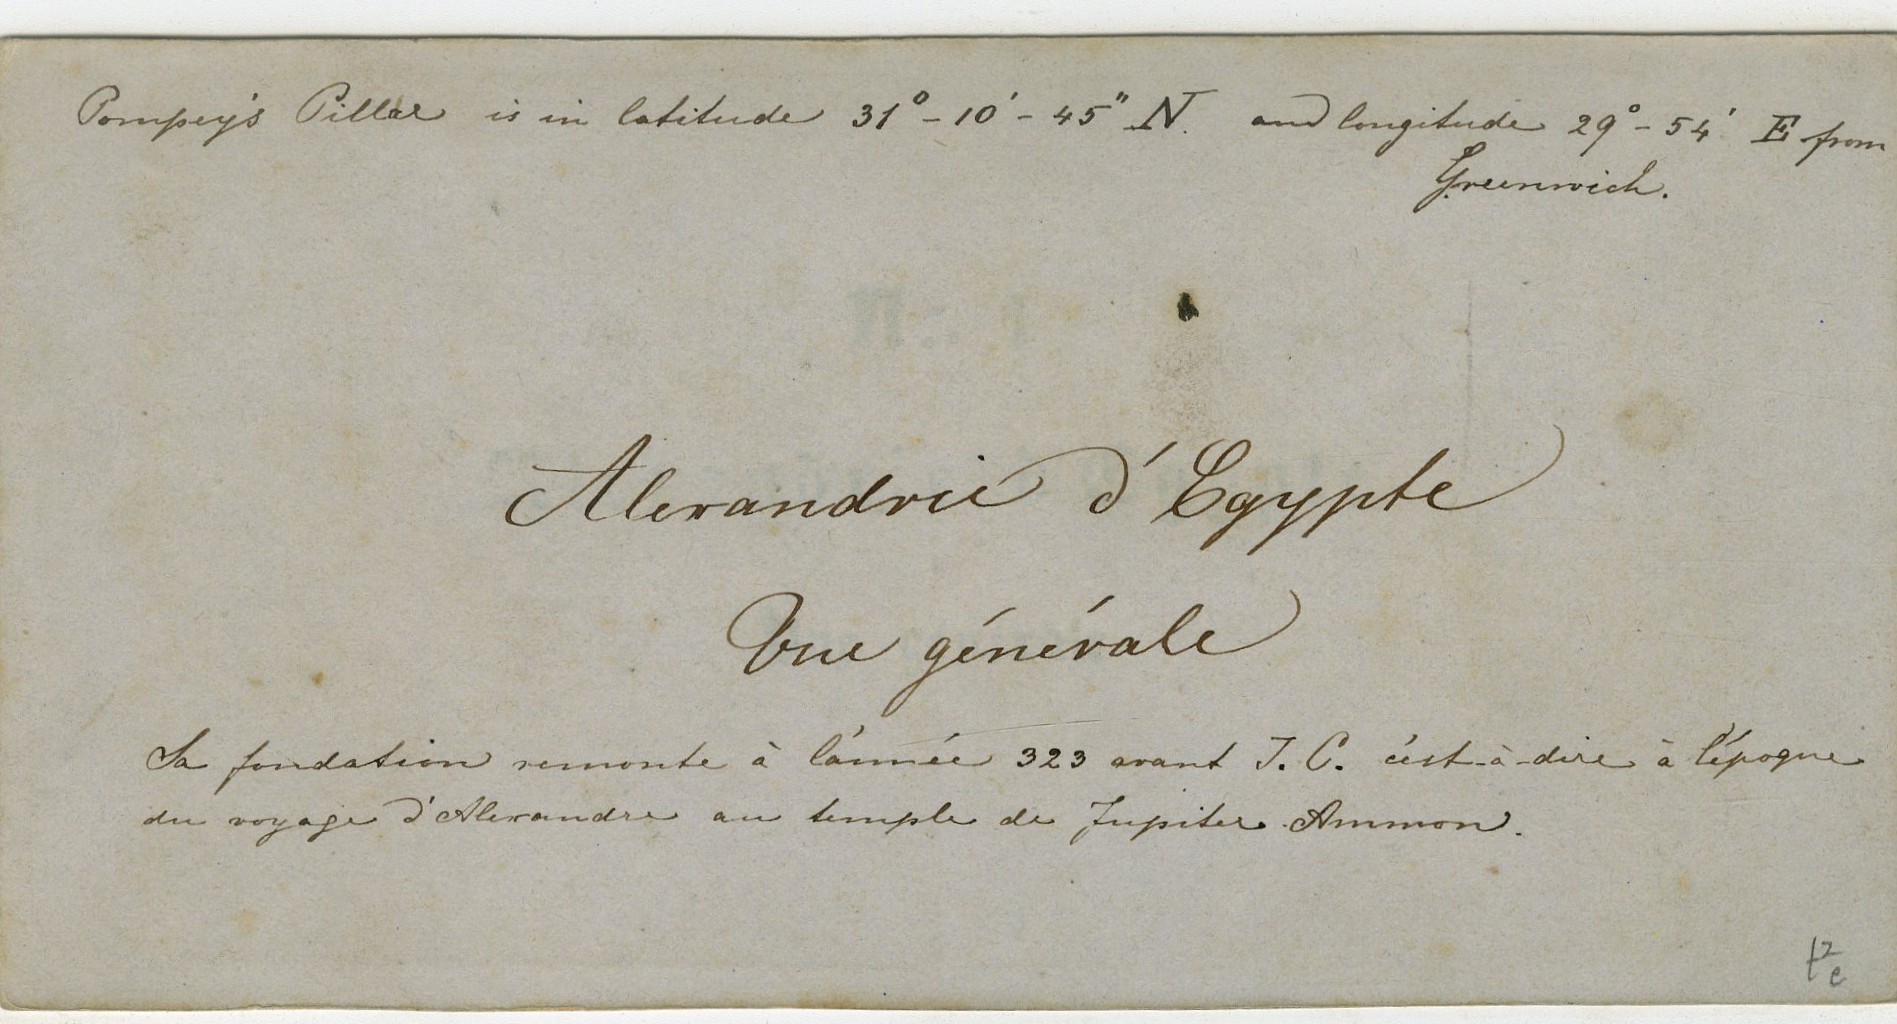 Pompey's Pillar is in latitude 31° - 10' - 45" N. and longitude 29° - 54' E from
Greenwich.
Alexandrie d'Egypte
Vue générale
Sa fondation remonte à l'année 323 avant J. C. c'est-à-dire à l'époque
du voyage d'Alexandre au temple de Jupiter Ammon.